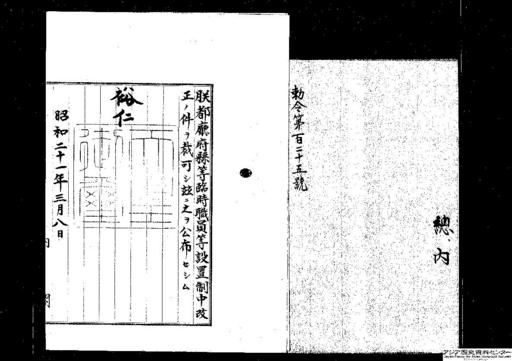 總、内
勅令第百二十五號
朕都廳府縣等臨時職員等設置制中改
正ノ件ヲ裁可シ茲ニ之ヲ公布セシム
裕仁
昭和二十一年三月八日
内閣
アジア歴史資料センター